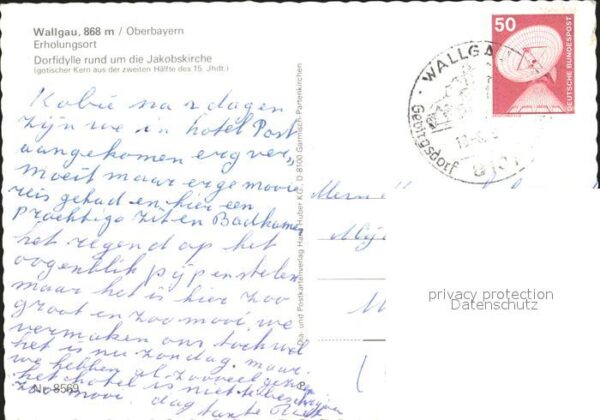 Wallgau, 868 m / Oberbayern
Erholungsort
Dorfidylle rund um die Jakobskirche
(gotischer Kern aus der zweiten Hälfte des 15. Jhdt.)
na 2 dagen
zijn we in hotel Post
aangekomen erg ver,,
moeit maar erge mooie
reis gehad en hier een
prachtige zit en Badkamer
het regend op het
oogenblik pijpenstelen
maar het is hier zoo
groot en zoo mooi. we
vermaken ons toch wel
het is nu zondag. maar
we hebben al zooveel gezien
het hotel is niet te beschrijven
zoo mooi. dag tante
Nr. 8569
Dia- und Postkartenverlag Hans Huber KG., D 8100 Garmisch-Partenkirchen
50
DEUTSCHE BUNDESPOST
WALLGAU
Gebirgsdorf
8101
privacy protection
Datenschutz